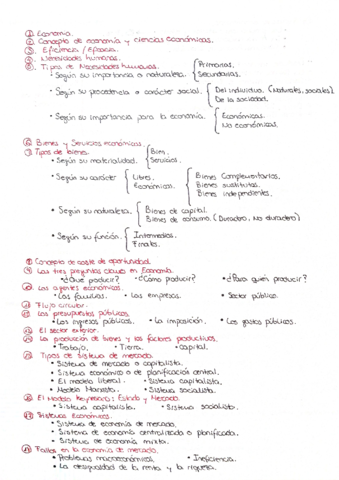 ① Economía.
② Concepto de economía y ciencias económicas.
③ Eficiencia / Eficacia.
④ Necesidades humanas.
⑤ Tipos de Necesidades humanas.
• Según su importancia o naturaleza. { Primarias. Secundarias.
• Según su procedencia o carácter social. { Del individuo. (Naturales, sociales) De la sociedad.
• Según su importancia para la economía. { Económicas. No económicas.
⑥ Bienes y Servicios económicos.
⑦ Tipos de bienes.
• Según su materialidad. { Bien. Servicios.
• Según su carácter { Libres. Económicos. { Bienes Complementarios. Bienes sustitutos. Bienes independientes.
• Según su naturaleza. { Bienes de capital. Bienes de consumo. (Duradero, No duradero)
• Según su función. { Intermedios. Finales.
⑧ Concepto de coste de oportunidad.
⑨ Las tres preguntas claves en Economía.
• ¿Qué producir? • ¿Cómo producir? • ¿Para quién producir?
⑩ Los agentes económicos.
• Las familias. • Las empresas. • Sector público.
⑪ Flujo circular.
⑫ Los presupuestos públicos.
• Los ingresos públicos. • La imposición. • Los gastos públicos.
⑬ El sector exterior.
⑭ La producción de bienes y los factores productivos.
• Trabajo. • Tierra. • Capital.
⑮ Tipos de Sistema de mercado.
• Sistema de mercado o capitalista.
• Sistema económico o de planificación central.
• El modelo liberal. • Sistema capitalista.
• Modelo Marxista. • Sistema socialista.
⑯ El Modelo Keynesiano: Estado y Mercado.
• Sistema capitalista. • Sistema socialista.
⑰ Sistemas Económicos.
• Sistema de economía de mercado.
• Sistema de economía centralizada o planificada.
• Sistema de economía mixta.
⑱ Fallos en la economía de mercado.
• Problemas macroeconómicos. • Ineficiencia.
• La desigualdad de la renta y la riqueza.